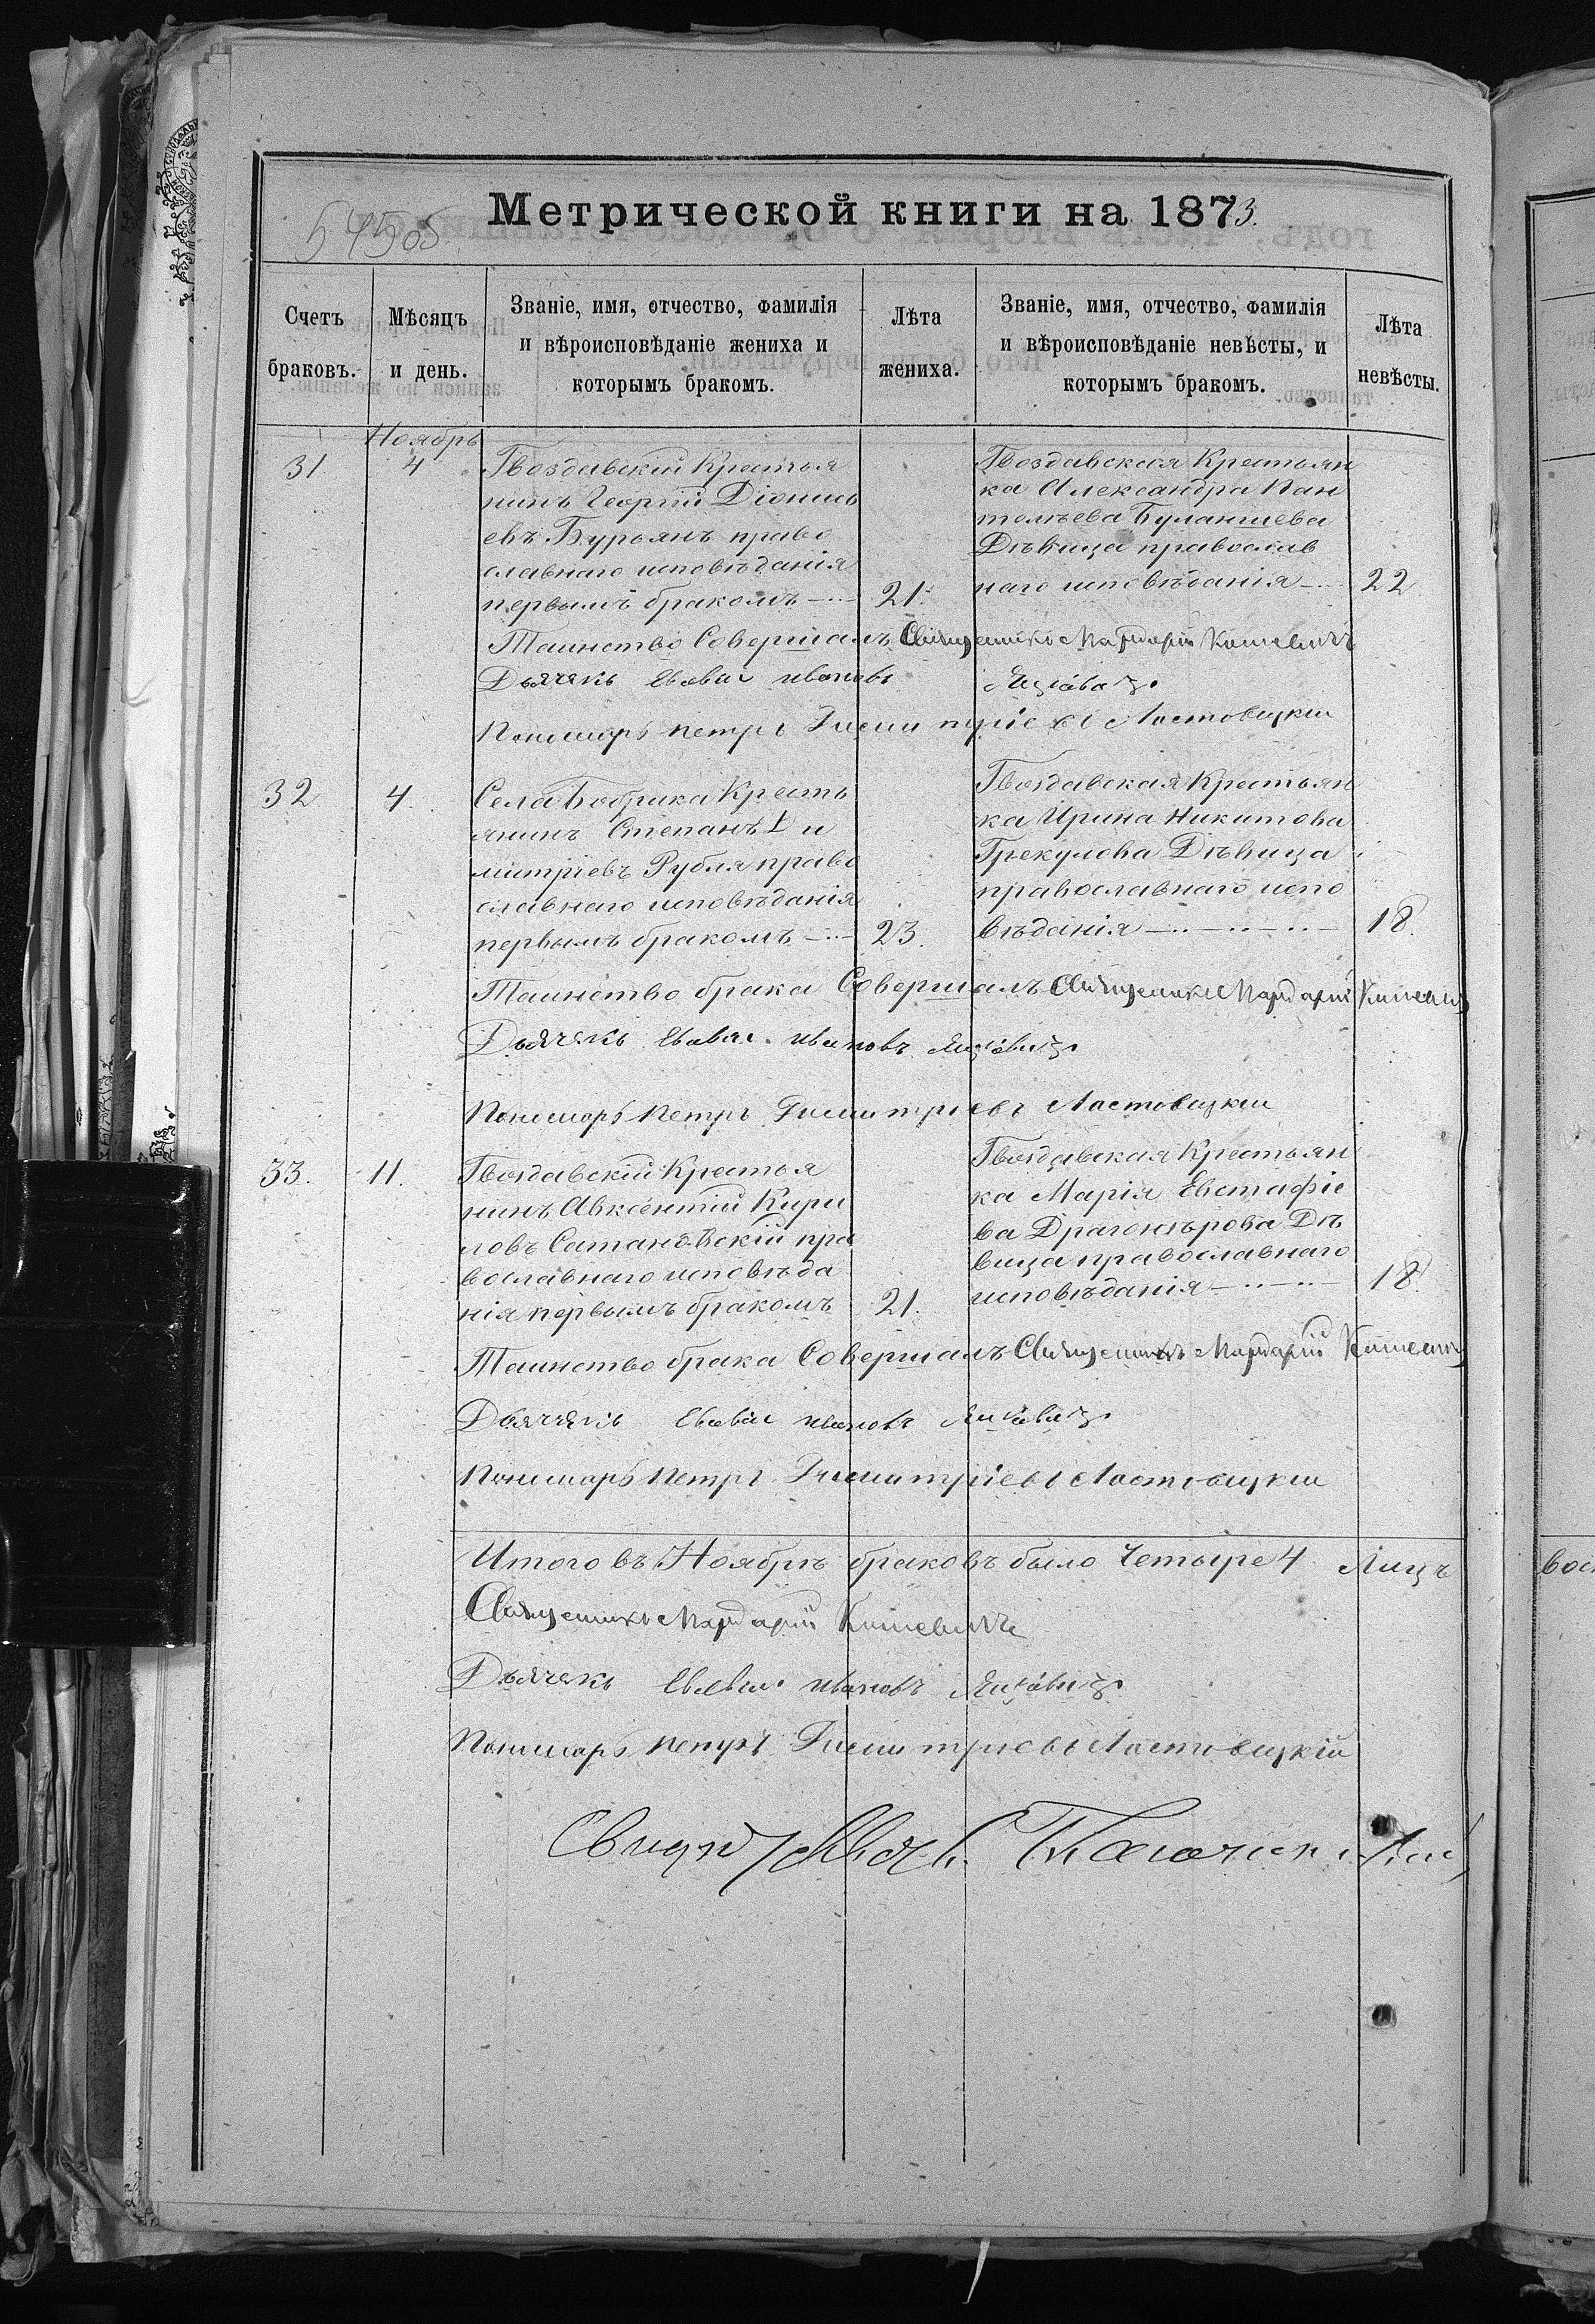 Метрической книги на 1873.
Счетъ браковъ.
Мѣсяцъ и день.
Званіе, имя, отчество, фамилія
и вѣроисповѣданіе жениха и
которымъ бракомъ.
Лѣта жениха.
Званіе, имя, отчество, фамилія
и вѣроисповѣданіе невѣсты, и
которымъ бракомъ.
Лѣта невѣсты.
Ноябрь
31
4
Гвоздавскій Крестья
нинъ Георгій Діонись
евъ Бурьянъ право
славнаго исповѣданія
первымъ бракомъ
21.
Гвоздавская Крестьян
ка Александра Пан
телѣева
Дѣвица православ
наго исповѣданія
22
Таинство Совершалъ Священникъ Мардарій
Дьячекъ Ивановъ
Пономарь Петръ Димитріевъ Ластовецкій
32
4.
Села Бобрика Кресть
янинъ Степанъ Ди
митріевъ Рубля право
славнаго исповѣданія
первымъ бракомъ
23.
Гвоздавская Крестьян
ка Ирина Никитова
Грекулова Дѣвица
православнаго испо
вѣданія
18.
Таинство брака Совершалъ Священникъ Мардарій
Дьячекъ Ивановъ
Пономарь Петръ Димитріевъ Ластовецкій
33.
11.
Гвоздавскій Крестья
нинъ Авксентій Кири
ловъ Сатановскій пра
вославнаго исповѣда
нія первымъ бракомъ
21.
Гвоздавская Крестьян
ка Марія Евстафіе
ва Драгонѣрова Дѣ
вица православнаго
исповѣданія
18.
Таинство брака Совершалъ Священникъ Мардарій
Дьячекъ Ивановъ
Пономарь Петръ Димитріевъ Ластовецкій
Итого въ Ноябрѣ браковъ было Четыре 4
Священникъ Мардарій
Дьячекъ Ивановъ
Пономарь Петръ Димитріевъ Ластовецкій